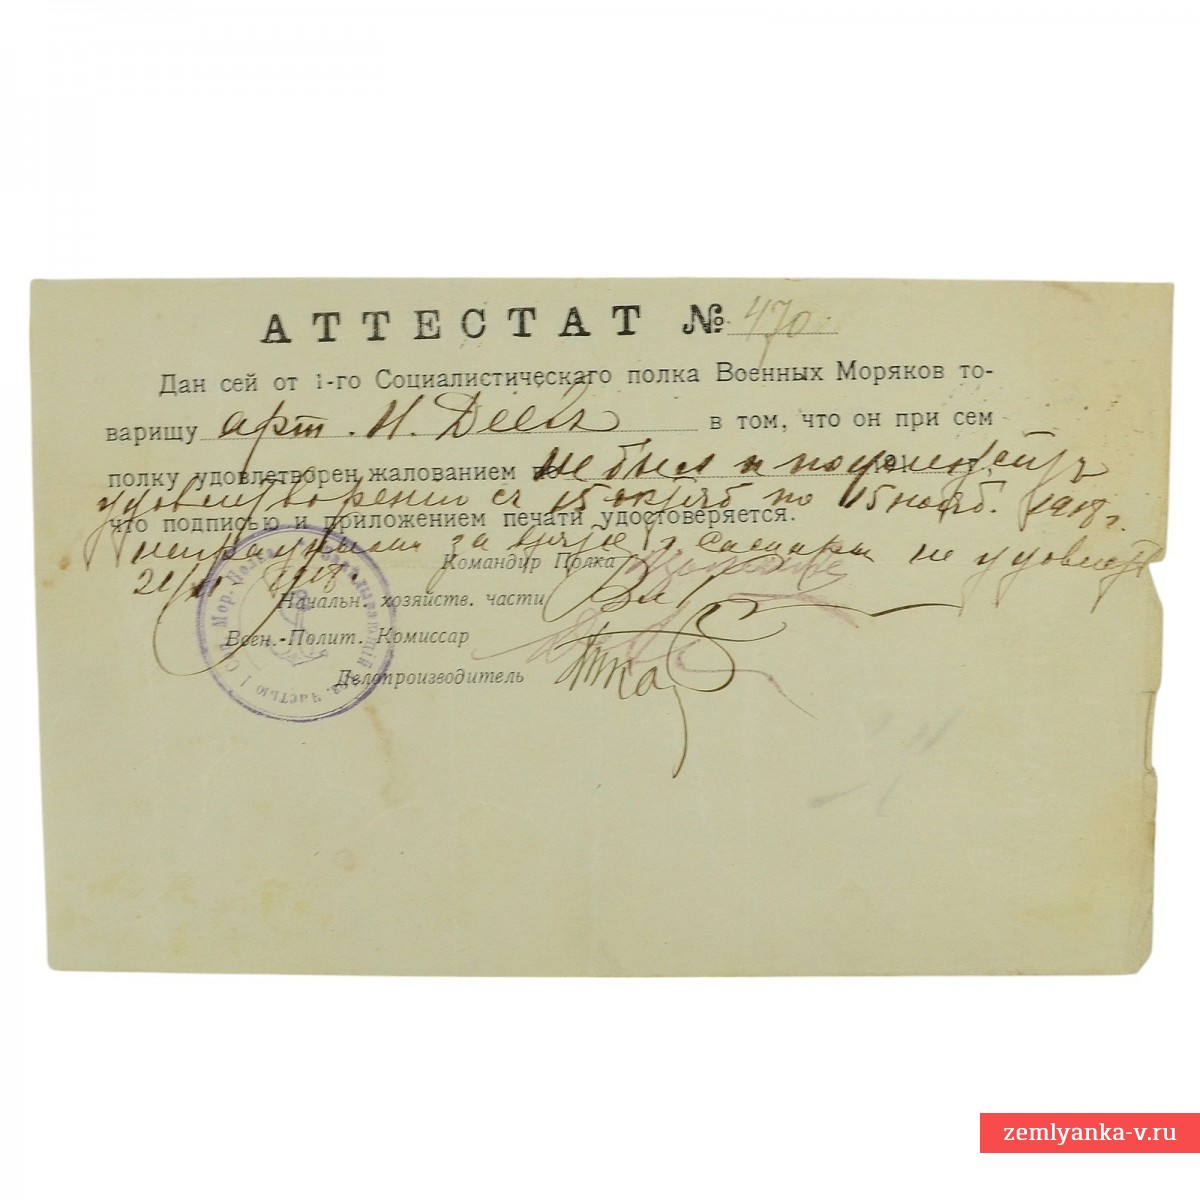 АТТЕСТАТ № 470
Дан сей от 1-го Социалистическаго полка Военных Моряков то-
варищу арт. И. Деев в том, что он при сем
полку удовлетворен жалованием по не был и подлежит
удовлетворению с 15 октяб по 15 нояб. 1918 г.
что подписью и приложением печати удостоверяется.
за не удовлет
21/XI 1918 г. Командир Полка
Начальн. хозяйств. части
Воен.-Полит. Комиссар
Делопроизводитель
Завѣдывающій хоз. частью 1 Соц. Мор. Полка
zemlyanka-v.ru